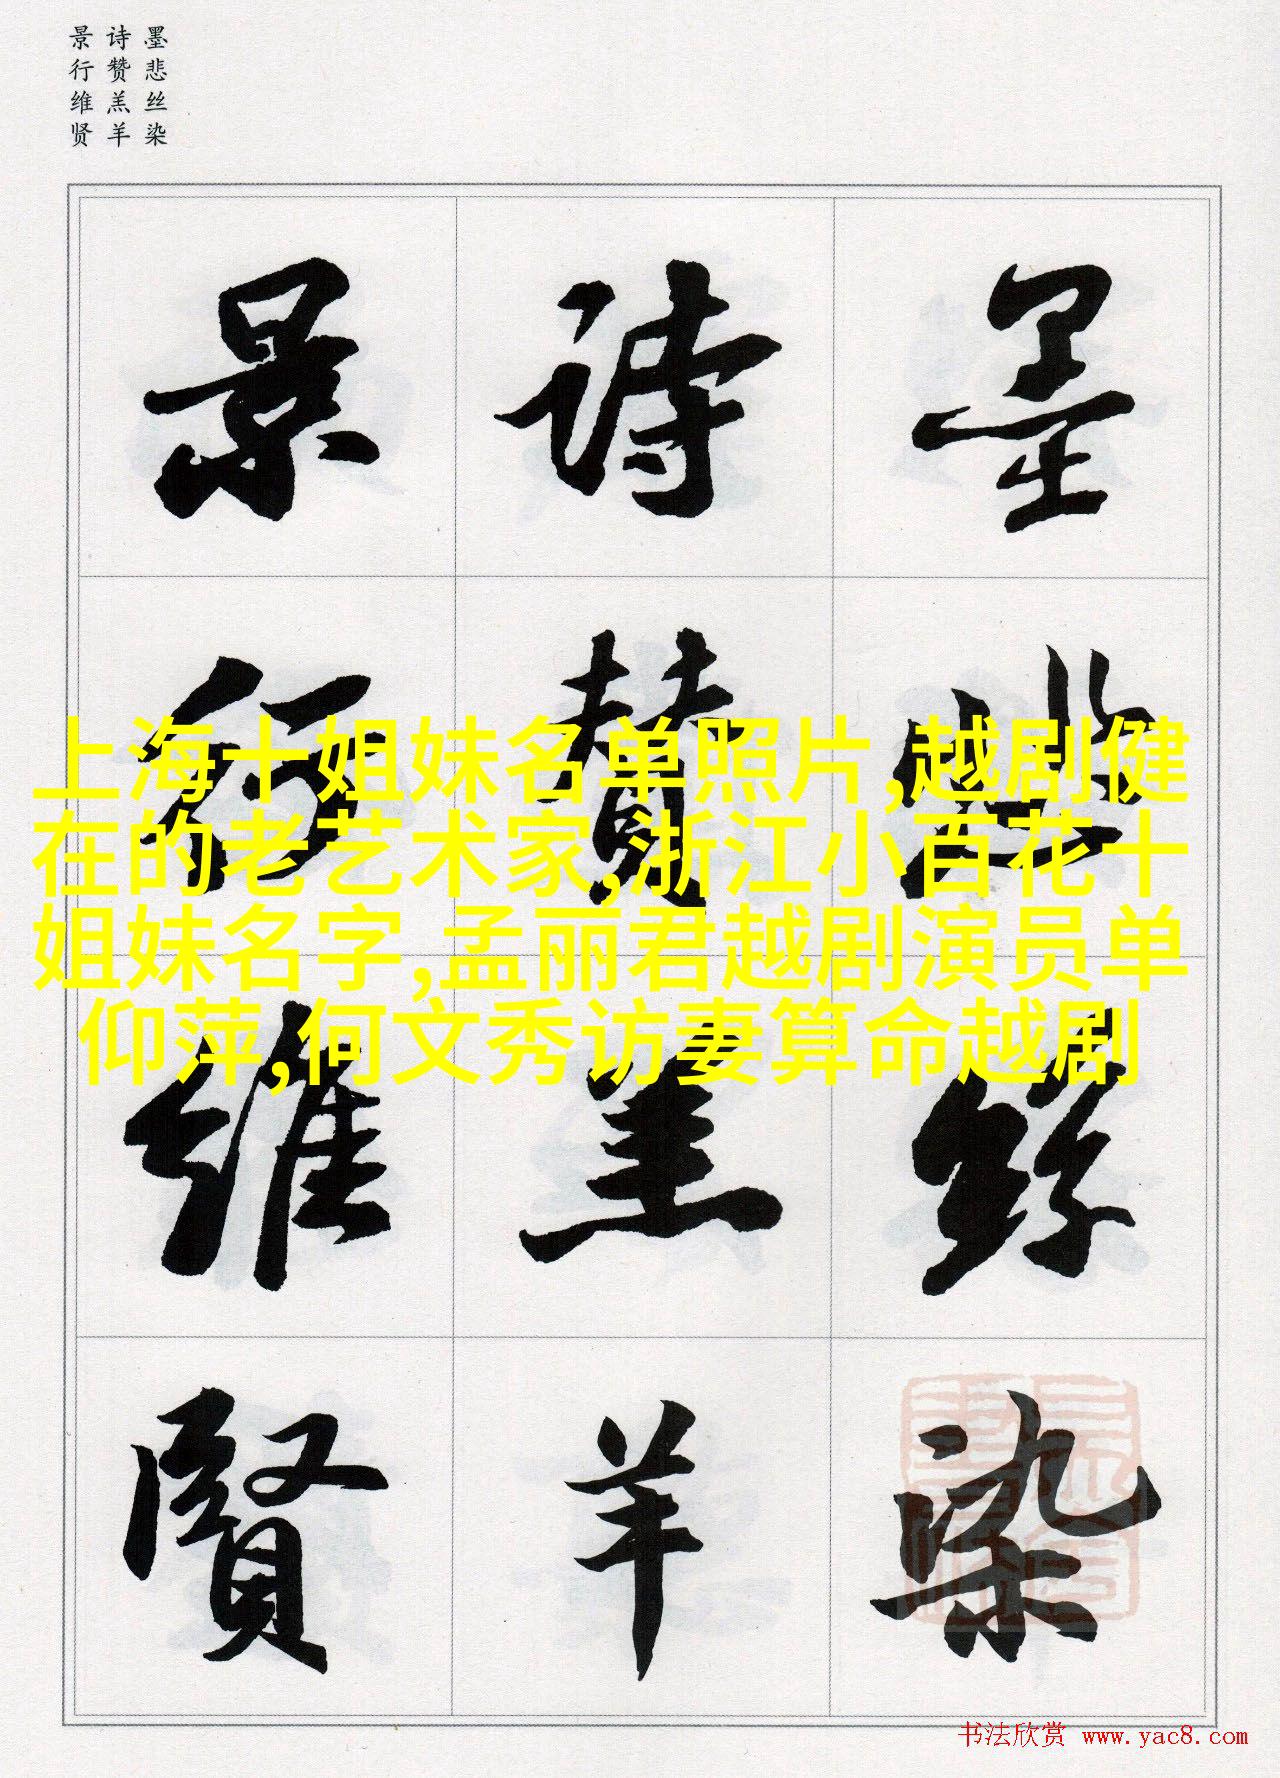 墨悲丝染
诗赞羔羊
景行维贤
墨悲丝染
詩赞羔羊
景行維賢
上海十姐妹名单照片,越剧健
在的老艺术家,浙江小百花十
姐妹名字,孟丽君越剧演员单
仰萍,何文秀访妻算命越剧
书法欣赏 www.yac8.com